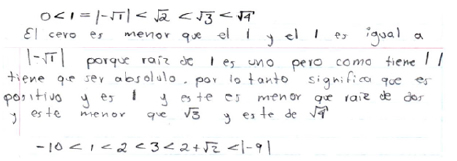 0 < 1 = |-√1| < √2 < √3 < √4
El cero es menor que el 1 y el 1 es igual a
|-√1| porque raiz de 1 es uno pero como tiene | |
tiene que ser absoluto, por lo tanto significa que es
positivo y es 1 y este es menor que raiz de dos
y este menor que √3 y este de √4
-10 < 1 < 2 < 3 < 2+√2 < |-9|